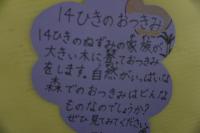 14ひきのおつきみ
14ひきのねずみの家族が、
大きい木に登っておつきみ
をします。自然がいっぱいな
森でのおつきみはどんな
ものなのでしょうか?
ぜひ見てみてください。